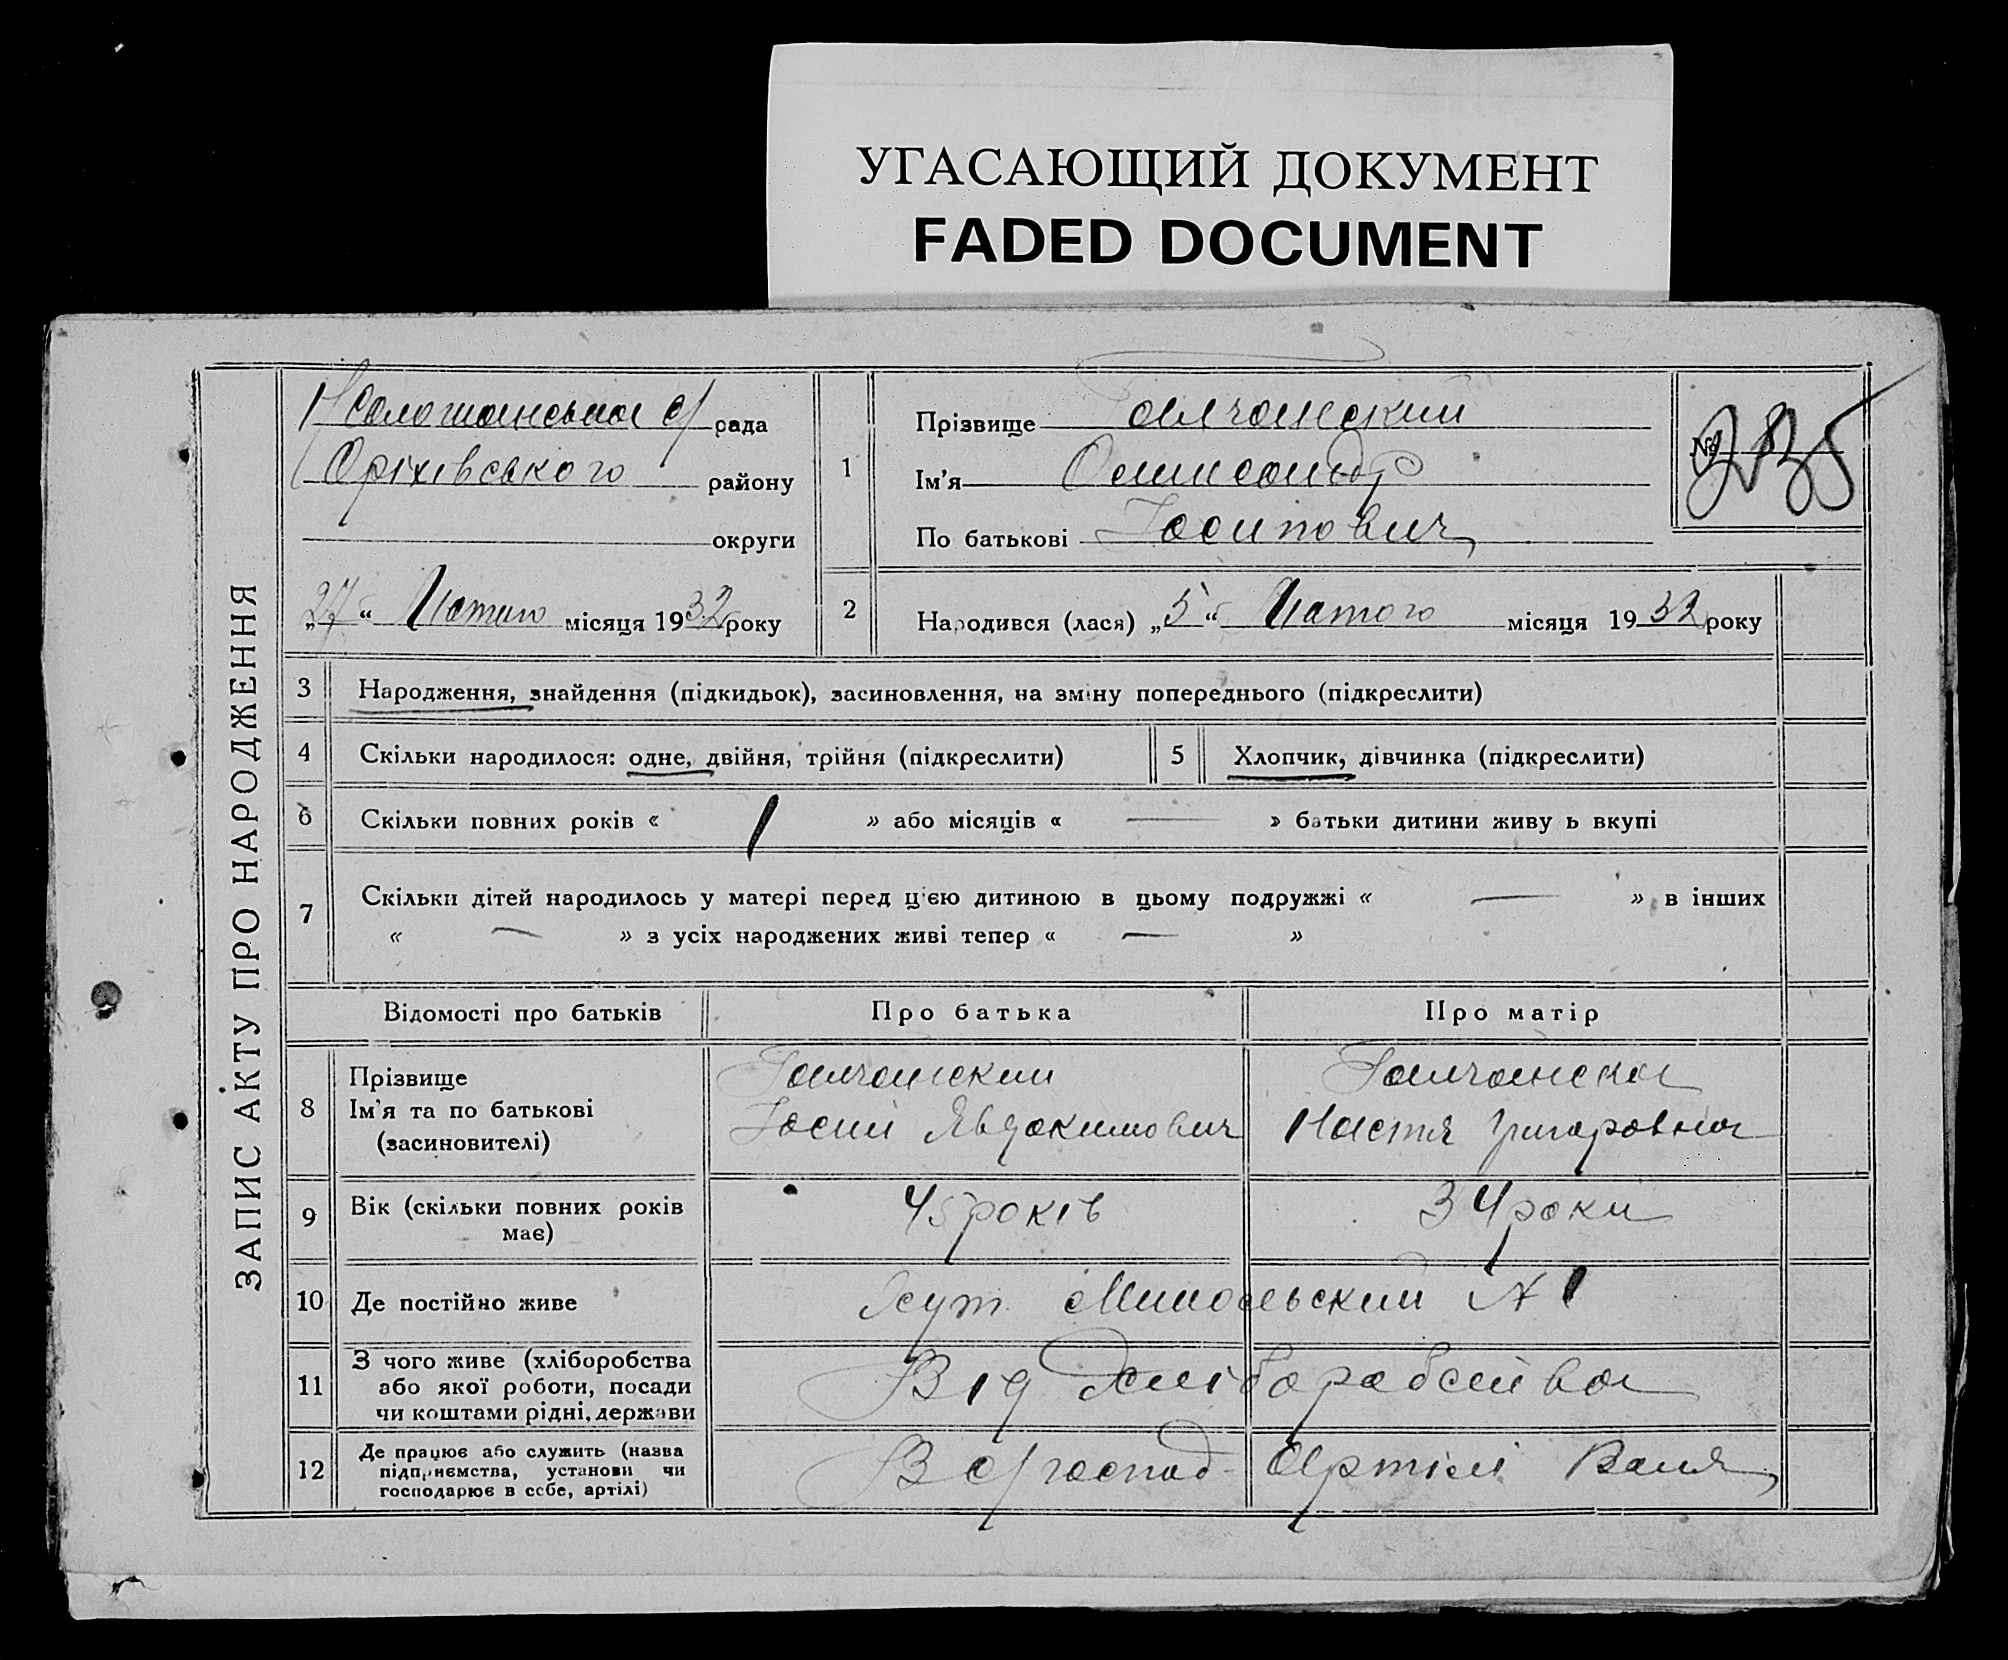 УГАСАЮЩИЙ ДОКУМЕНТ
FADED DOCUMENT
ЗАПИС АКТУ ПРО НАРОДЖЕННЯ
с/ рада
Оріхівського району
округи
„27“ Лютого місяця 1932 року
1
Прізвище Галчанский
Ім’я Олександр
По батькові Іосипович
№
2
Народився (лася) „5“ Лютого місяця 1932 року
3 Народження, знайдення (підкидьок), засиновлення, на зміну попереднього (підкреслити)
4 Скільки народилося: одне, двійня, трійня (підкреслити)
5 Хлопчик, дівчинка (підкреслити)
6 Скільки повних років « 1 » або місяців « — » батьки дитини живу ь вкупі
7 Скільки дітей народилось у матері перед цією дитиною в цьому подружжі « — » в інших
« — » з усіх народжених живі тепер « — »
Відомості про батьків Про батька Про матір
8 Прізвище
Ім’я та по батькові
(засиновителі)
Галчанский
Іосип Явдокимович
Галчанска
Настя Григоровна
9 Вік (скільки повних років
має)
45 років
34 роки
10 Де постійно живе
Хут. №1
11 З чого живе (хліборобства
або якої роботи, посади
чи коштами рідні, держави
Від Хліборобства
12 Де працює або служить (назва
підприємства, установи чи
господарює в себе, артілі)
В с/господ Артілі